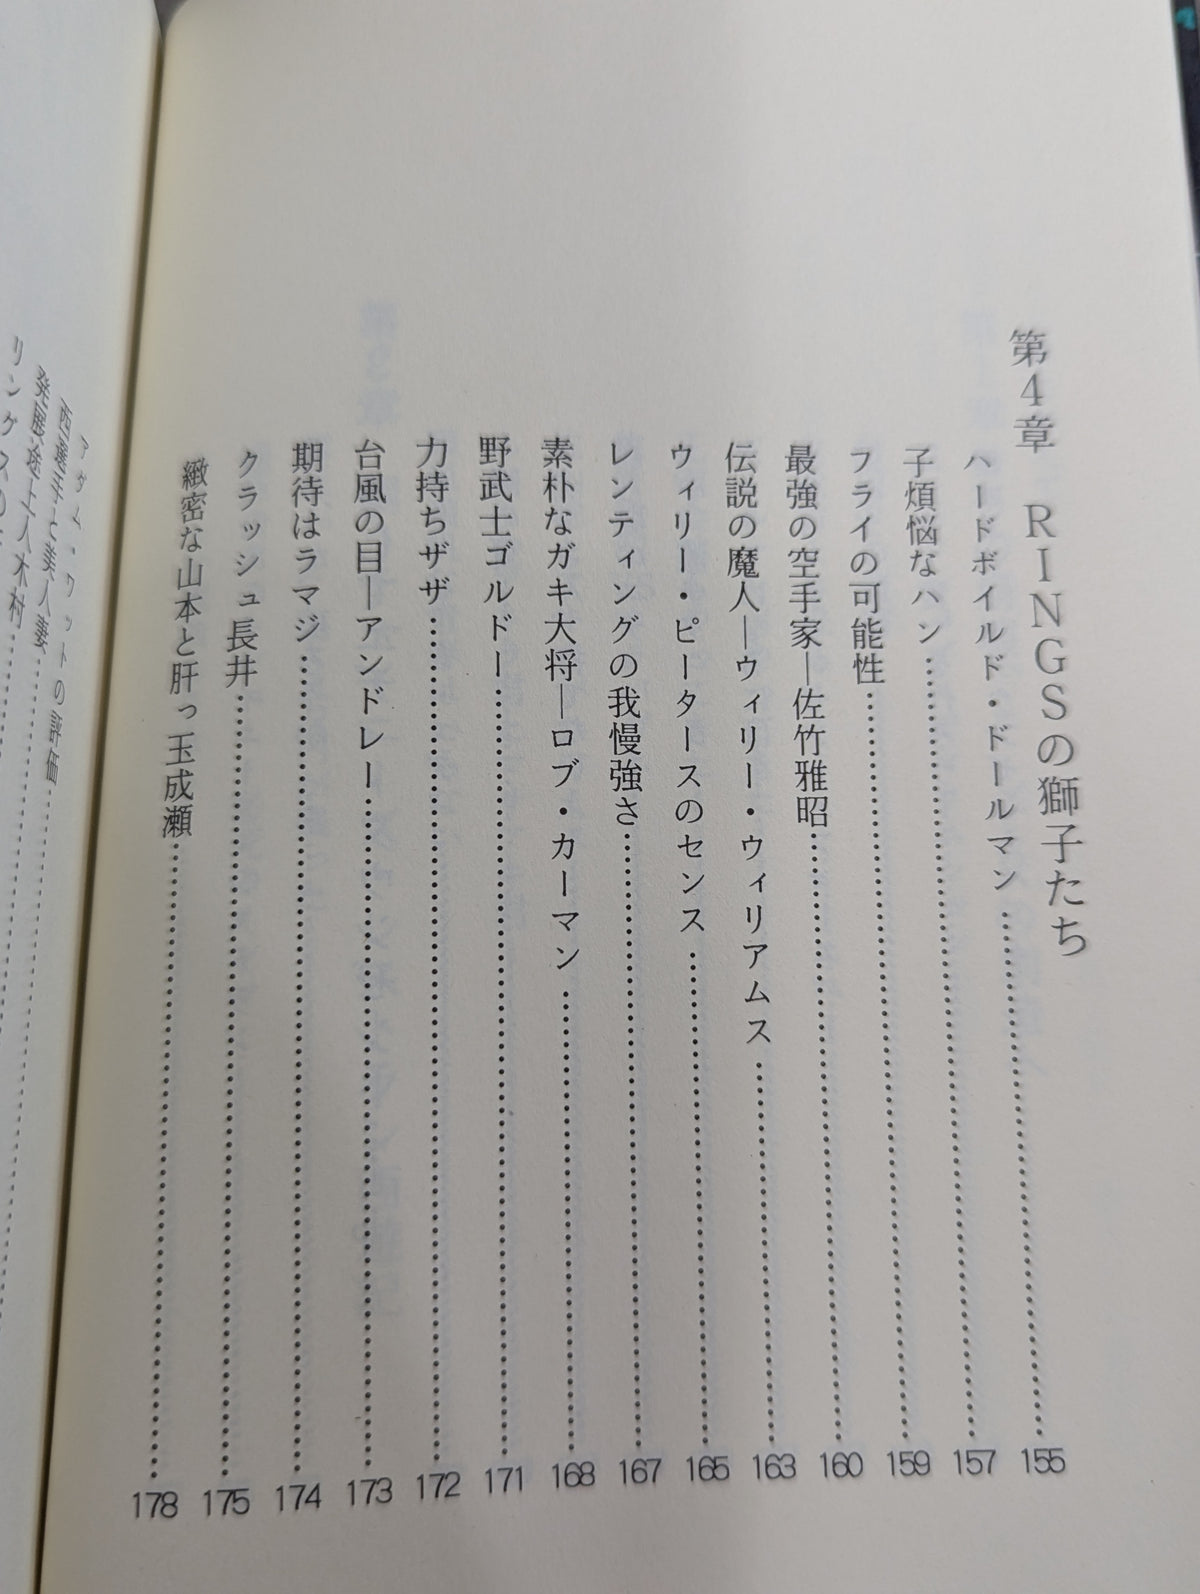 第4章　RINGSの獅子たち
ハードボイルド・ドールマン……155
子煩悩なハン……157
フライの可能性……159
最強の空手家―佐竹雅昭……160
伝説の魔人―ウィリー・ウィリアムス……163
ウィリー・ピータースのセンス……165
レンティングの我慢強さ……167
素朴なガキ大将―ロブ・カーマン……168
野武士ゴルドー……171
力持ちザザ……172
台風の目―アンドレー……173
期待はラマジ……174
クラッシュ長井……175
緻密な山本と肝っ玉成瀬……178
アダム・ワットの評価……
西選手と美人妻……
発展途上人木村……
リングスの